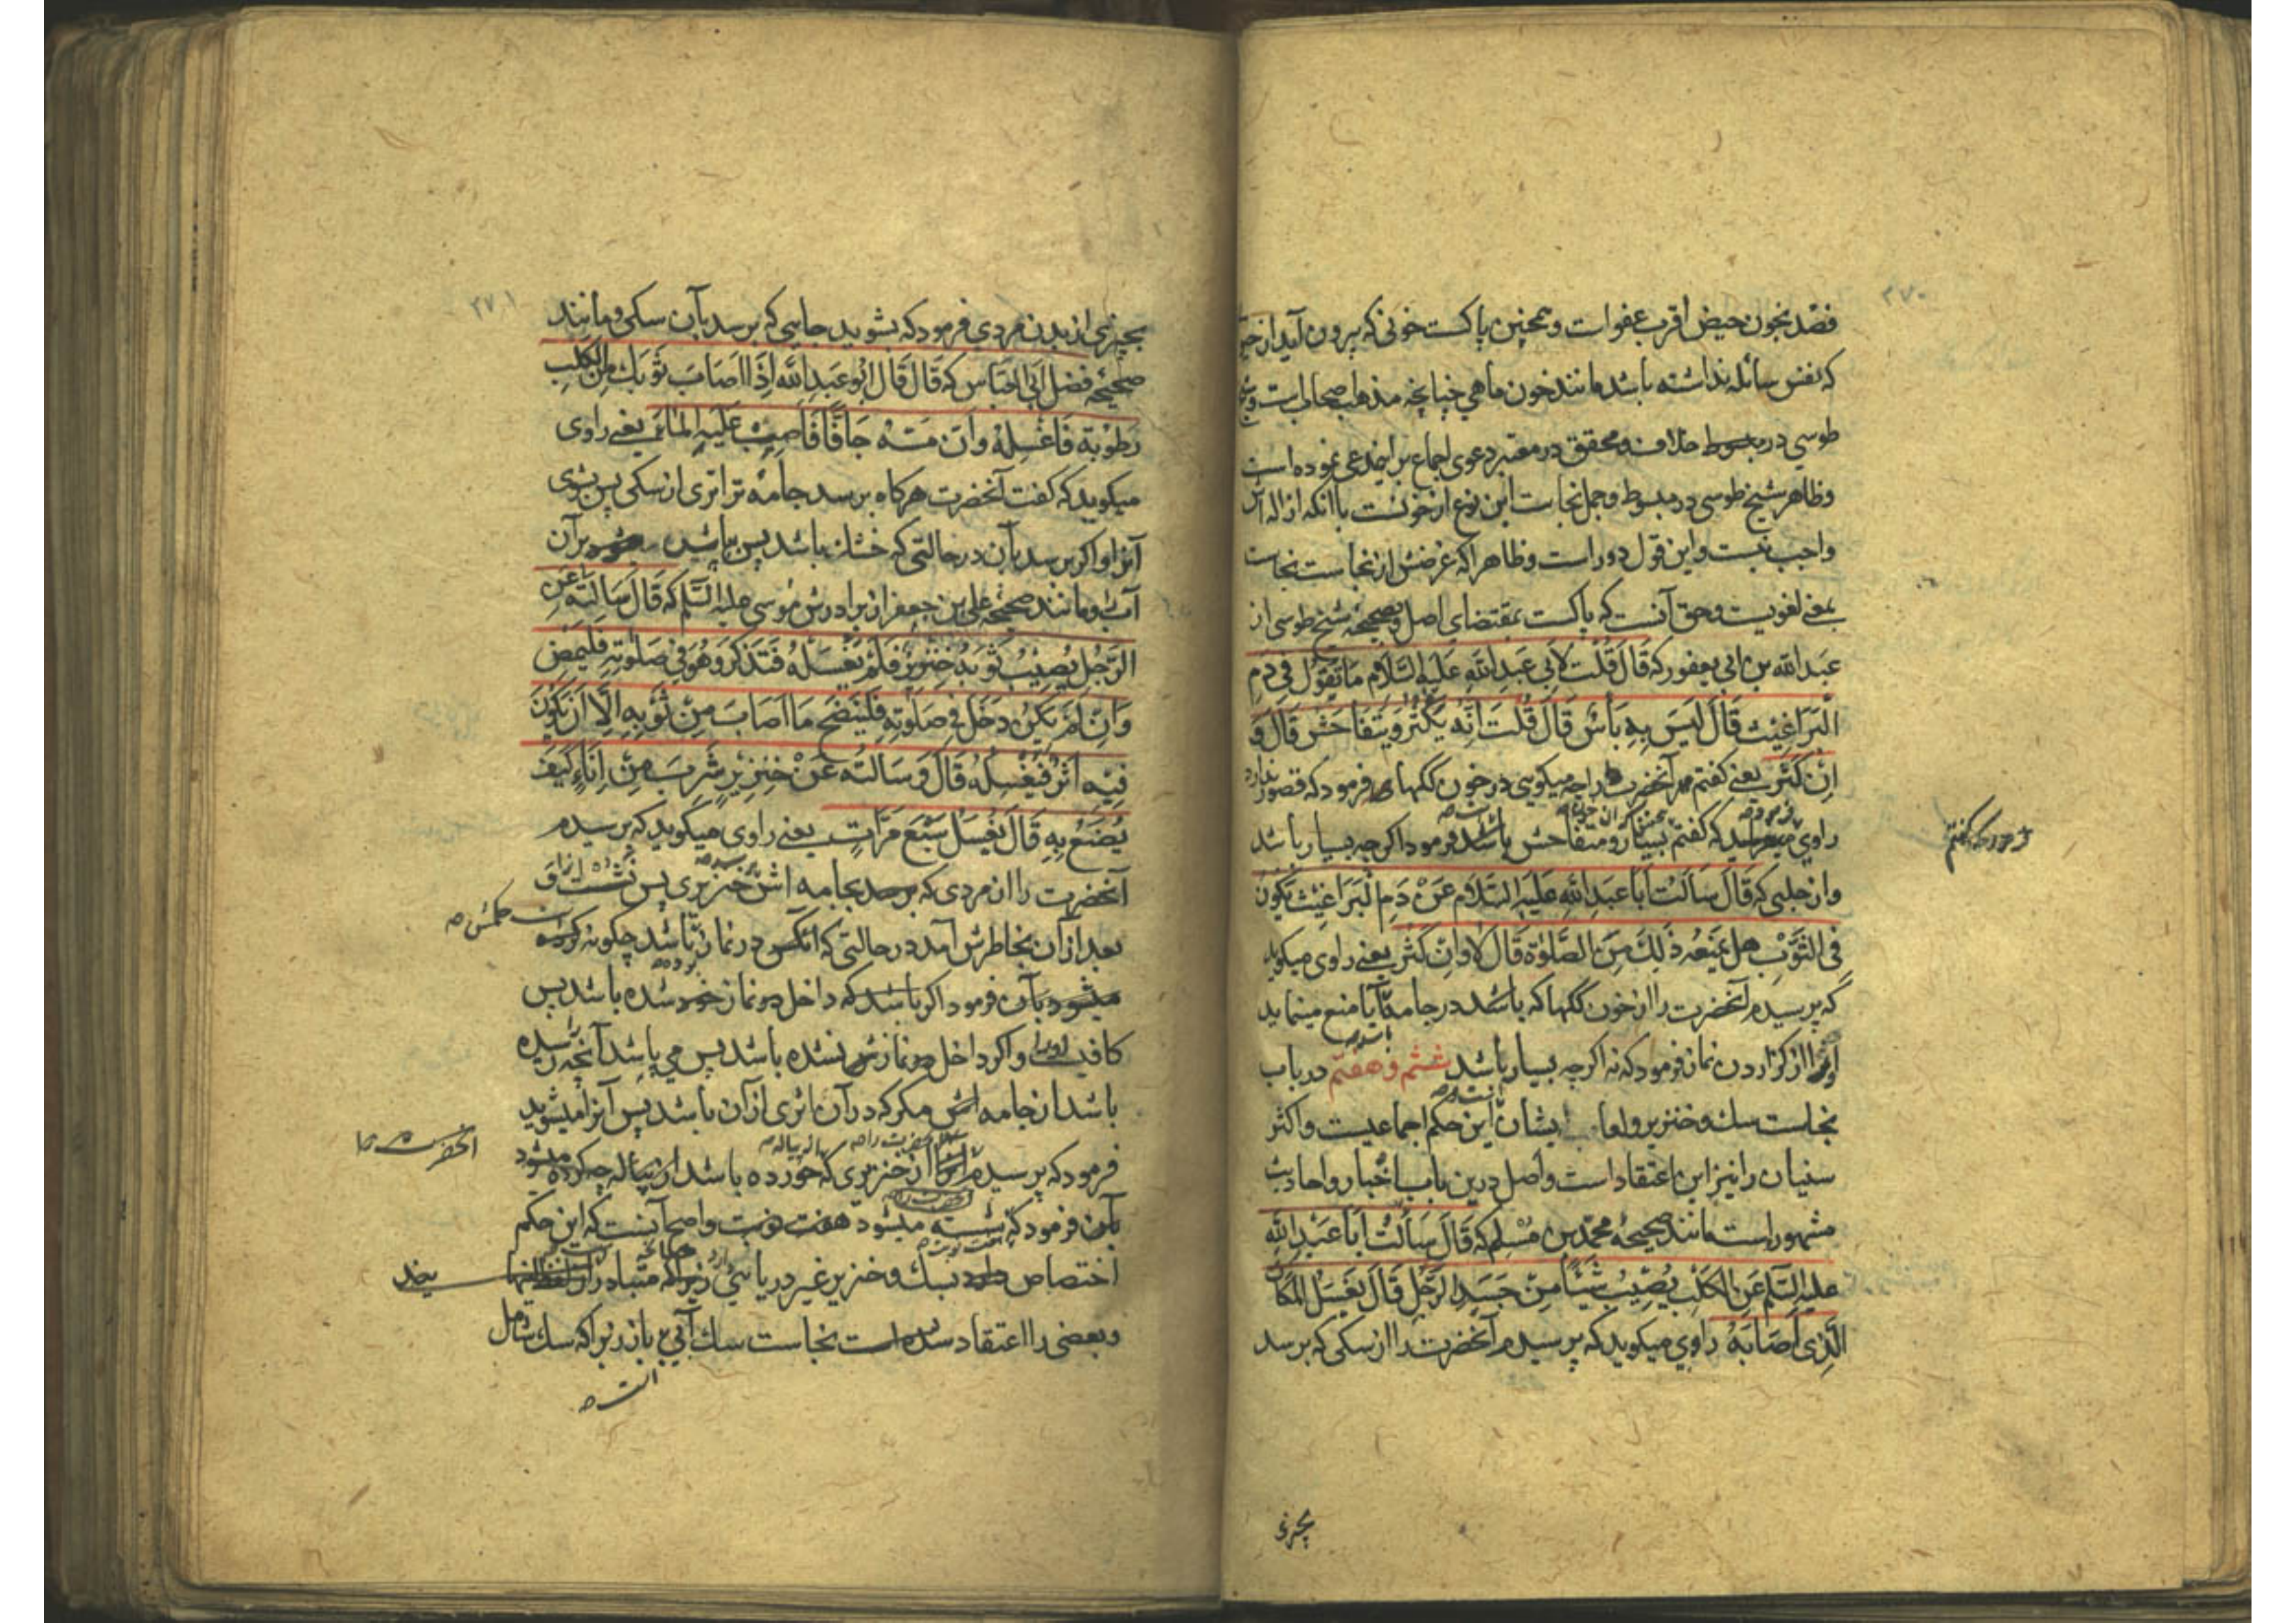 ۲۷۰
فصد بخون حیض اقرب عفوات و همچنین پاکست خونی که بیرون آید از
که نفس سائله نداشته باشد مانند خون ماهی چنانچه مذهب اصحابست و شیخ
طوسی در مبسوط خلاف و محقق در معتبر دعوی اجماع بر این مدعی نموده است
و ظاهر شیخ طوسی در مبسوط و جمل نجاست این نوع از خونست با آنکه ازاله آن
واجب نیست و این قول دور است و ظاهرا که غرضش از نجاست نجاست
بمعنی لغویست و حق آنست که پاکست بمقتضای اصل و صحیحه شیخ طوسی از
عبد الله بن ابی یعفور که قَالَ قُلْتُ لِاَبی عَبدِ اللهِ عَلَیهِ السَّلَام مَا تَقُولُ فِی دَمِ
الْبَرَاغِیثِ قَالَ لَیسَ بِهِ بَأسٌ قَالَ قُلْتُ اِنَّه یَکْثُرُ وَیَتَفَاحَشُ قَالَ وَ
اِنْ کَثُرَ یعنی گفتم مر آنحضرت را چه میگوئی در خون ککها فرمود که قصور ندارد
راوی که گفتم بسیار و متفاحش باشد فرمود اگرچه بسیار باشد
فرمود که گفتم
و از حلبی که قَالَ سَاَلْتُ اَبَا عَبدِ اللهِ عَلَیهِ السَّلَام عَنْ دَمِ الْبَرَاغِیثِ یَکُونُ
فِی الثَّوْبِ هَل یَمْنَعُه ذٰلِكَ مِنَ الصَّلٰوةِ قَالَ لَا وَاِنْ کَثُرَ یعنی راوی میگوید
که پرسیدم آنحضرت را از خون ککها که باشد در جامه آیا منع مینماید
او را از گزاردن نماز فرمود که نه اگرچه بسیار باشد ششم و هفتم در باب
نجاست سك و خنزیر و لعاب ایشان این حکم اجماعیست و اکثر
سنیان را نیز این اعتقاد است و اصل درین باب اخبار و احادیث
مشهور است مانند صحیحه محمد بن مُسْلِم که قَالَ سَاَلْتُ اَبَا عَبْدِ اللهِ
علیه السّلم عَنِ الکَلْبِ یُصِیبُ شَیْئًا مِنْ جَسَدِ الرَّجُلِ قَالَ یَغسِلُ المَکَانَ
الَّذِی اَصَابَهُ راوی میگوید که پرسیدم آنحضرت را از سکی که برسد
بچیزی
۲۷۱
بچیزی از بدن مردی فرمود که بشوید جایی که برسد بآن سکی و مانند
صحیحه فضل ابی العباس که قَالَ قَالَ اَبُو عَبدِ الله اِذَا اَصَابَ ثَوْبَكَ مِنَ الکَلبِ
رُطُوبَة فَاغْسِلْهُ وَاِنْ مَسَّهُ جَافًّا فَاصْبُبْ عَلَیهِ المَاءَ یعنی راوی
میگوید که گفت آنحضرت هرگاه برسد جامه ترا تری از سکی پس بشوی
آنرا و اگر برسد بآن در حالتی که خشك باشد پس بپاشد بر آن
آب و مانند صحیحه علی بن جعفر از برادرش موسی علیه السّلم که قَالَ سَاَلْتُه عَنِ
الرَّجُلِ یُصِیبُ ثَوبَهُ خِنْزِیرٌ فَلَمْ یَغْسِلْهُ فَتَذَکَّرَ وَهُوَ فِی صَلٰوتِهِ فَلْیَمْضِ
وَاِنْ لَمْ یَکُنْ دَخَلَ فِی صَلٰوتِهِ فَلْیَنْضَحْ مَا اَصَابَ مِنْ ثَوْبِهِ اِلَّا اَنْ یَکُونَ
فِیهِ اَثَرٌ فَیَغْسِلُهُ قَالَ وَسَاَلْتُه عَنْ خِنْزِیرٍ شَرِبَ مِنْ اِنَاءٍ کَیْفَ
یُصْنَعُ بِهِ قَالَ یُغْسَلُ سَبْعَ مَرَّاتٍ یعنی راوی میگوید که پرسیدم
آنحضرت را از مردی که بجامه اش خنزیری پس نشست آنرا و
بعد از آن بخاطرش آمد در حالتی که در نماز باشد چگونه است حکمش
بآن فرمود اگر که داخل در نماز خود شده باشد پس
کافیست او را و اگر داخل در نمازش نشده باشد پس می پاشد آنچه رسیده
باشد از جامه اش مگر که در آن اثری از آن باشد پس آنرا میشوید
فرمود که پرسیدم آنحضرت را از خنزیری که خورده باشد از پیاله چه کرده میشود
بآن فرمود که شسته میشود هفت نوبت و اصح آنست که این حکم
اختصاص دارد بسك و خنزیر غیر دریایی زیرا که متبادر از
و بعضی را اعتقاد نجاست سك آبی نیز باز زیرا که سك شامل
انست